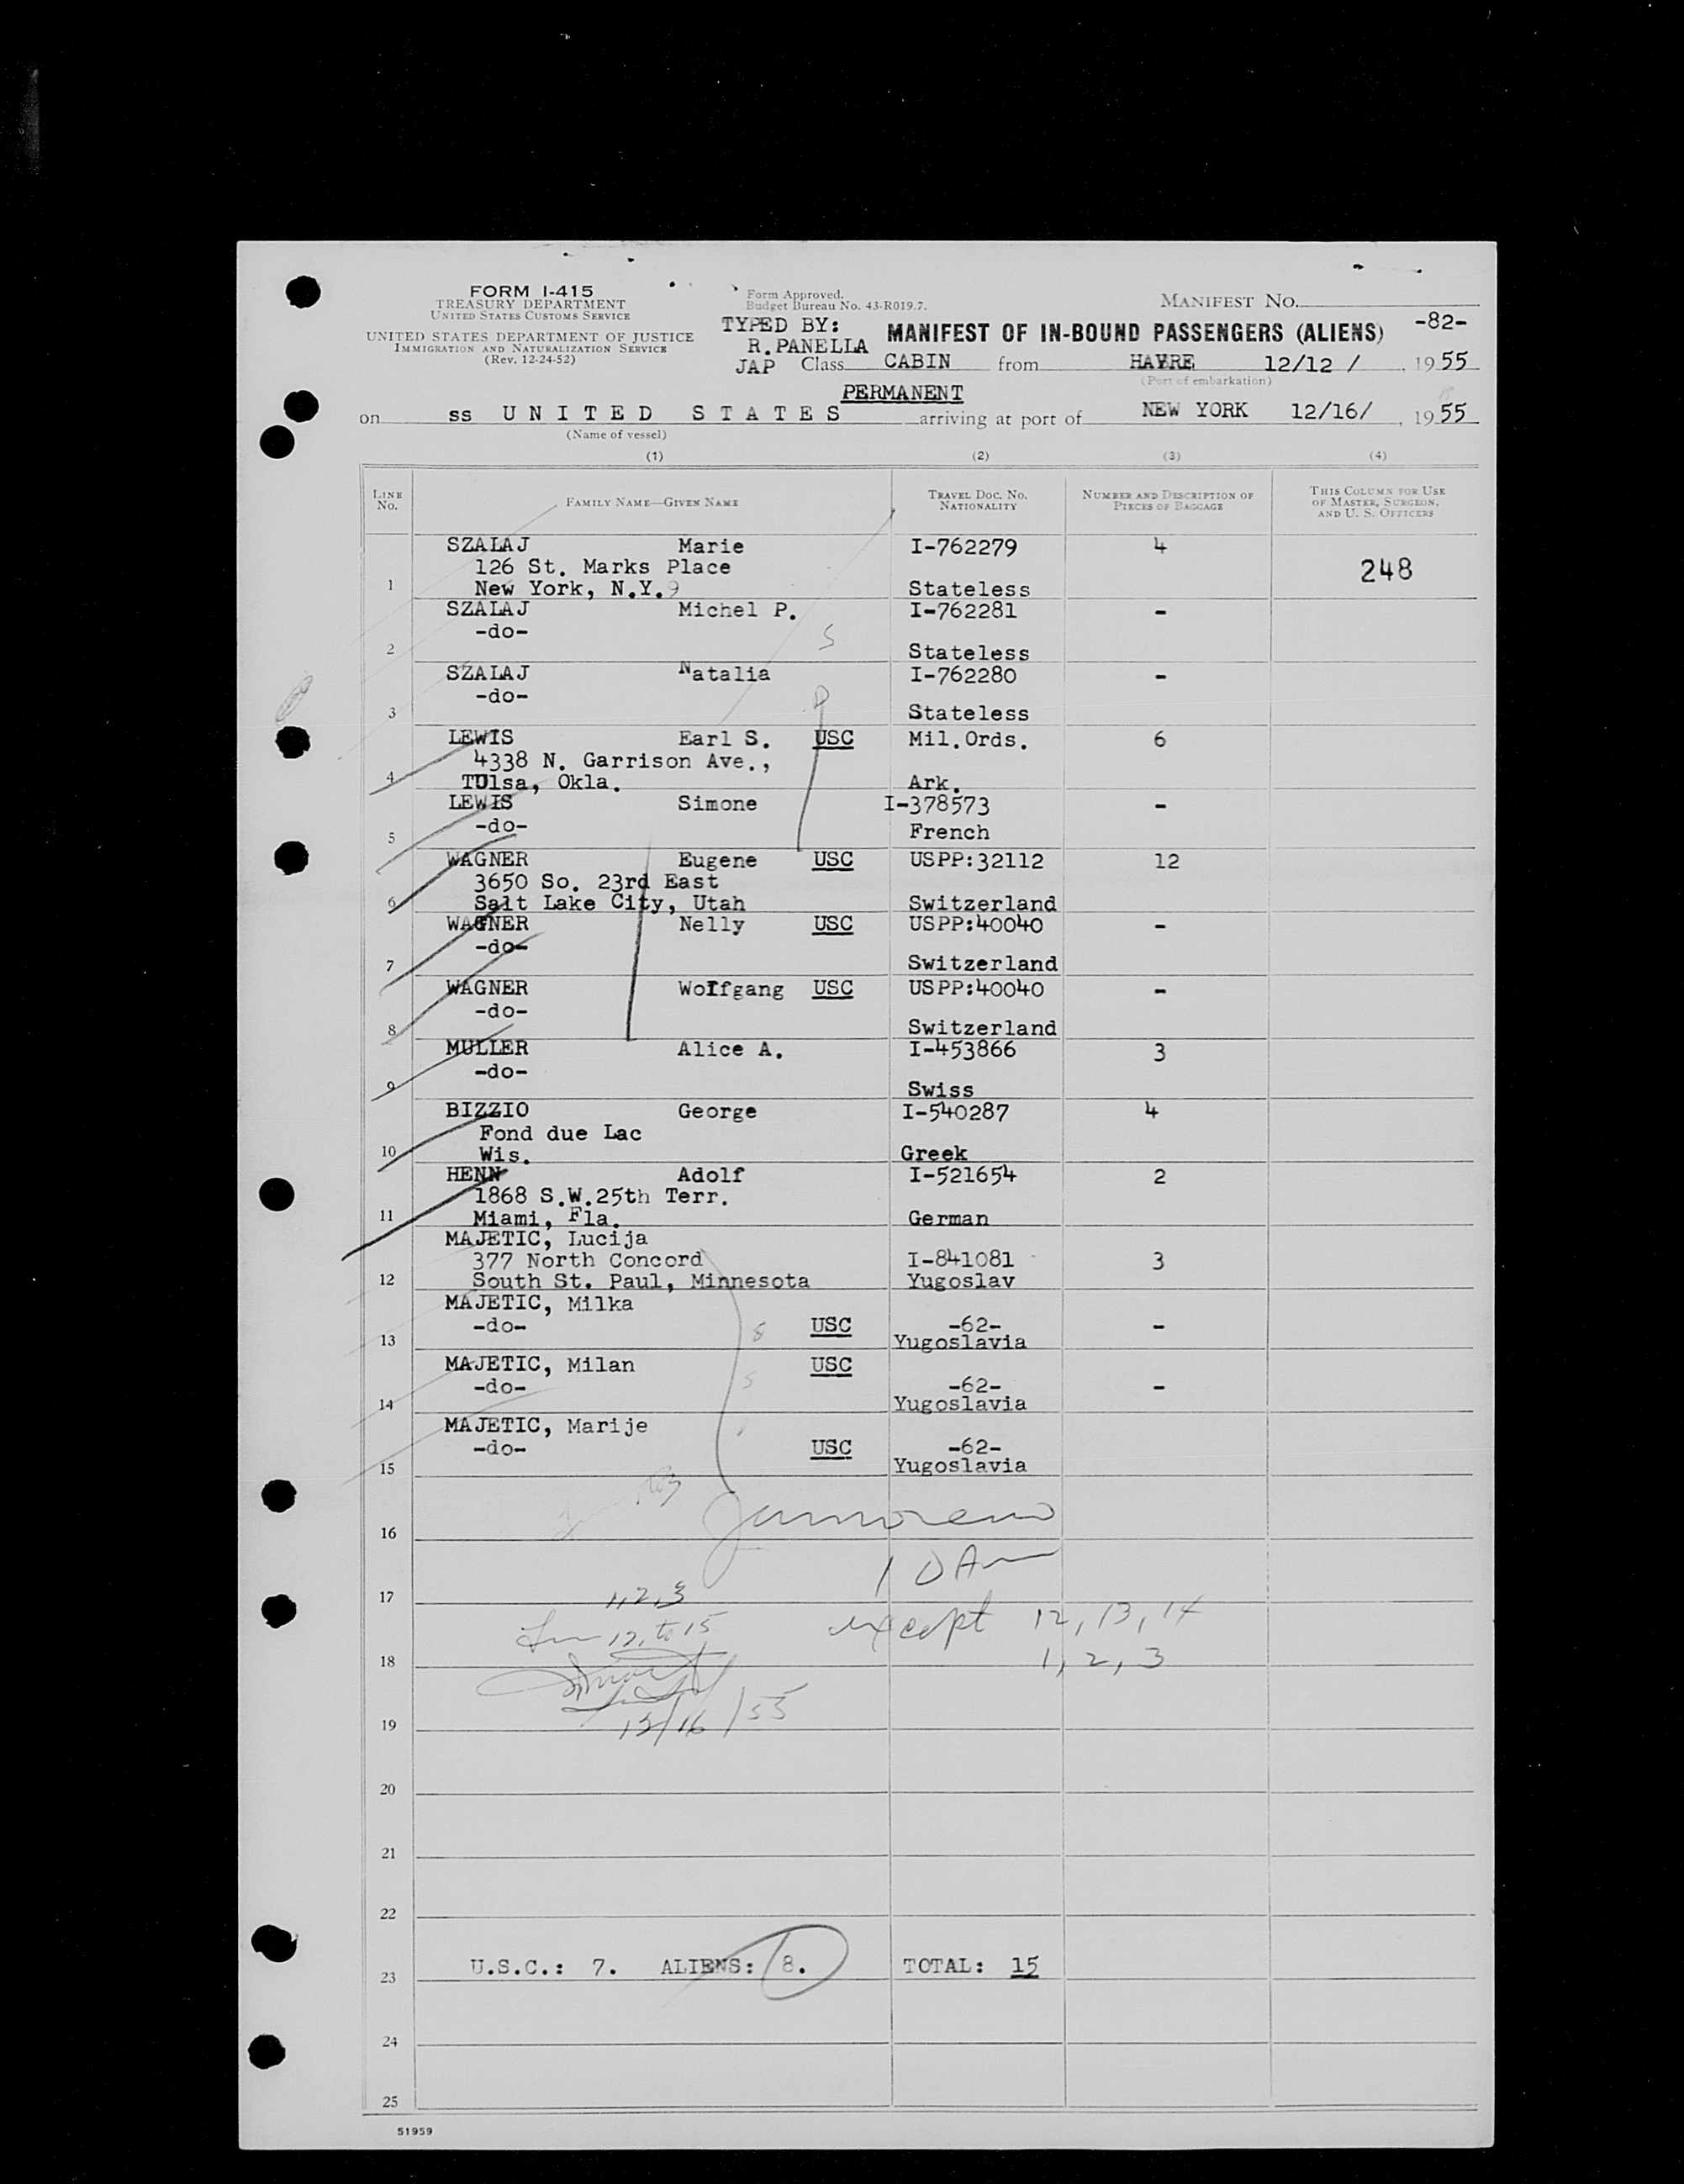 FORM I-415
TREASURY DEPARTMENT
UNITED STATES CUSTOMS SERVICE
UNITED STATES DEPARTMENT OF JUSTICE
IMMIGRATION AND NATURALIZATION SERVICE
(Rev. 12-24-52)
Form Approved.
Budget Bureau No. 43-R019.7.
MANIFEST NO.
-82-
TYPED BY:
R.PANELLA
JAP
MANIFEST OF IN-BOUND PASSENGERS (ALIENS)
Class CABIN from HAVRE 12/12 / , 1955
(Port of embarkation)
PERMANENT
on ss UNITED STATES arriving at port of NEW YORK 12/16/ , 1955
(Name of vessel)
(1) (2) (3) (4)
LINE No. FAMILY NAME—GIVEN NAME TRAVEL DOC. NO. NATIONALITY NUMBER AND DESCRIPTION OF PIECES OF BAGGAGE THIS COLUMN FOR USE OF MASTER, SURGEON, AND U. S. OFFICERS
SZALAJ Marie I-762279 4
126 St. Marks Place 248
1 New York, N.Y.9 Stateless
SZALAJ Michel P. I-762281 -
-do- S
2 Stateless
SZALAJ Natalia I-762280 -
-do-
3 Stateless
LEWIS Earl S. USC Mil.Ords. 6
4338 N. Garrison Ave.,
4 TUlsa, Okla. Ark.
LEWIS Simone I-378573 -
5 -do- French
WAGNER Eugene USC USPP:32112 12
3650 So. 23rd East
6 Salt Lake City, Utah Switzerland
WAGNER Nelly USC USPP:40040 -
-do-
7 Switzerland
WAGNER Wolfgang USC USPP:40040 -
-do-
8 Switzerland
MULLER Alice A. I-453866 3
-do-
9 Swiss
BIZZIO George I-540287 4
Fond due Lac
10 Wis. Greek
HENN Adolf I-521654 2
1868 S.W.25th Terr.
11 Miami, Fla. German
MAJETIC, Lucija
377 North Concord I-841081 3
12 South St. Paul, Minnesota Yugoslav
MAJETIC, Milka
-do- USC -62- -
13 Yugoslavia
MAJETIC, Milan USC
-do- -62- -
14 Yugoslavia
MAJETIC, Marije
-do- USC -62-
15 Yugoslavia
16
17 1,2,3
12, to 15 except 12, 13, 14
18 1, 2, 3
19 12/16/55
20
21
22
23 U.S.C.: 7. ALIENS: 8. TOTAL: 15
24
25
51959